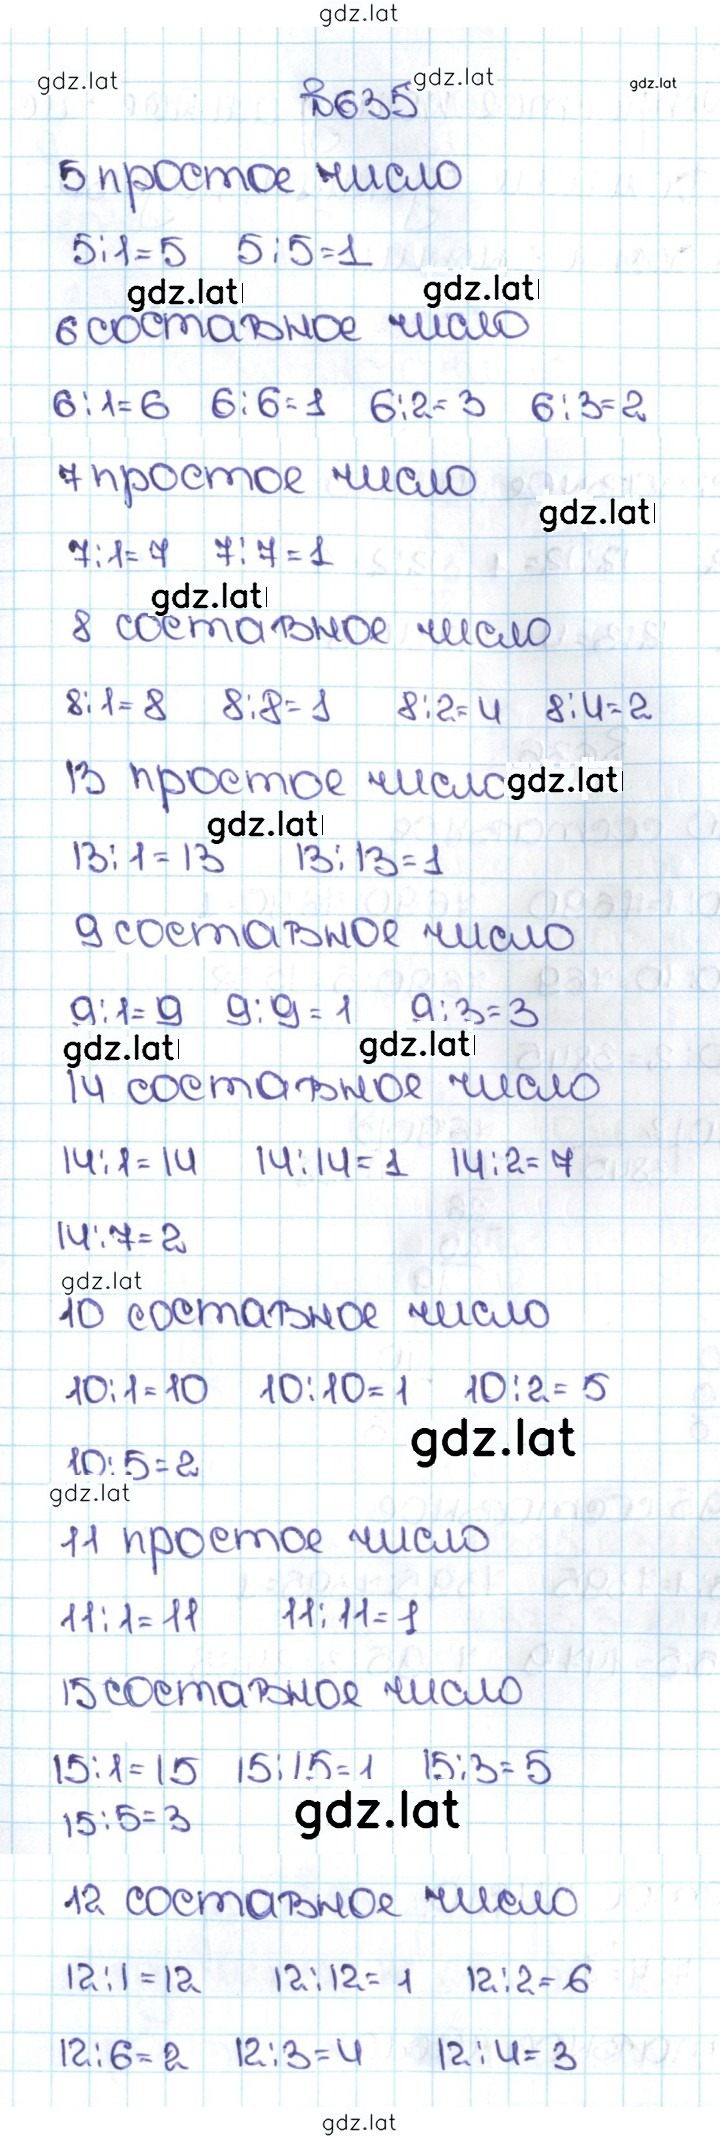 gdz.lat
gdz.lat gdz.lat gdz.lat
№635
5 простое число
5:1=5 5:5=1
gdz.lat gdz.lat
6 составное число
6:1=6 6:6=1 6:2=3 6:3=2
7 простое число
gdz.lat
7:1=7 7:7=1
gdz.lat
8 составное число
8:1=8 8:8=1 8:2=4 8:4=2
13 простое число gdz.lat
gdz.lat
13:1=13 13:13=1
9 составное число
9:1=9 9:9=1 9:3=3
gdz.lat gdz.lat
14 составное число
14:1=14 14:14=1 14:2=7
14:7=2
gdz.lat
10 составное число
10:1=10 10:10=1 10:2=5
gdz.lat
10:5=2
gdz.lat
11 простое число
11:1=11 11:11=1
15 составное число
15:1=15 15:15=1 15:3=5
15:5=3 gdz.lat
12 составное число
12:1=12 12:12=1 12:2=6
12:6=2 12:3=4 12:4=3
gdz.lat